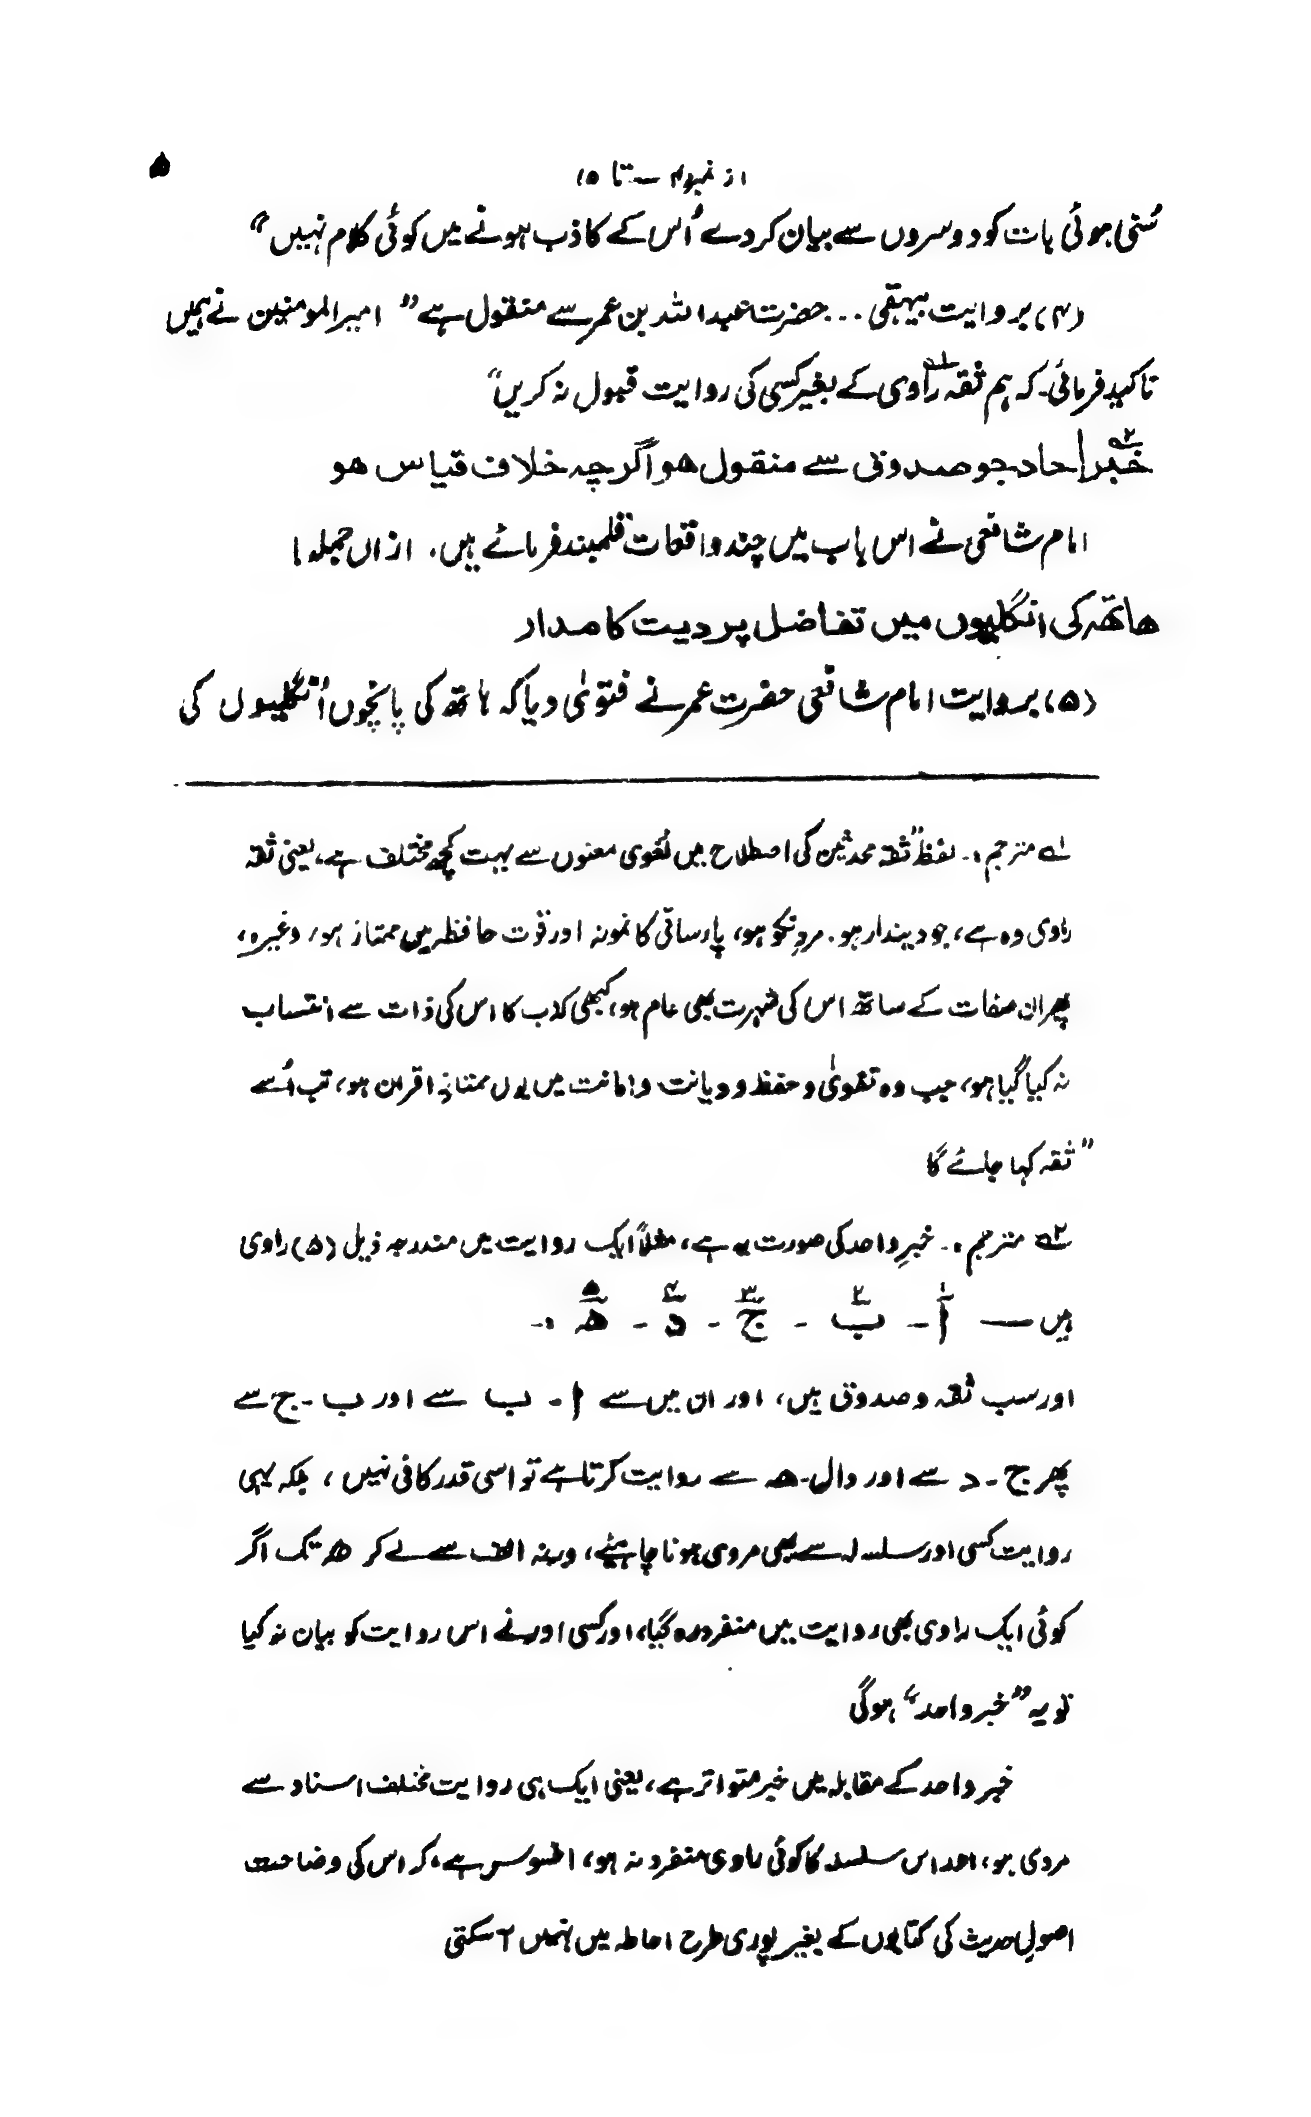 از نمبر ۴ — تا ۵                                ۵
سُنی ہوئی بات کو دوسروں سے بیان کر دے اُس کے کاذب ہونے میں کوئی کلام نہیں“
(۴) بروایت بیہقی ... حضرت عبد اللہ بن عمر سے منقول ہے ”امیر المومنین نے ہمیں
تاکید فرمائی۔ کہ ہم ثقہ ۱؎ راوی کے بغیر کسی کی روایت قبول نہ کریں“
خبر ۲؎ احاد جو صدوق سے منقول ھو اگرچہ خلاف قیاس ھو
امام شافعی نے اس باب میں چند واقعات قلمبند فرمائے ہیں۔ ازاں جملہ۔
ھاتھ کی انگلیوں میں تفاضل پر دیت کا مدار
(۵) بروایت امام شافعی حضرت عمر نے فتویٰ دیا کہ ہاتھ کی پانچوں اُنگلیوں کی
۱؎ مترجم:۔ لفظ ”ثقہ محدثین کی اصطلاح میں لغوی معنوں سے بہت کچھ مختلف ہے، یعنی ثقہ
راوی وہ ہے، جو دیندار ہو۔ مردِ نکو ہو، پارسائی کا نمونہ اور قوت حافظہ میں ممتاز ہو، وغیرہ،
پھر ان صفات کے ساتھ اس کی شہرت بھی عام ہو، کبھی کذب کا اس کی ذات سے انتساب
نہ کیا گیا ہو، جب وہ تقویٰ و حفظ و دیانت و امانت میں یوں ممتاز اقران ہو، تب اُسے
”ثقہ کہا جائے گا
۲؎ مترجم:۔ خبرِ واحد کی صورت یہ ہے، مثلاً ایک روایت میں مندرجہ ذیل (۵) راوی
ہیں — ا۱ - ب۲ - ج۳ - د۴ - ھ۵ :-
اور سب ثقہ و صدوق ہیں، اور ان میں سے ا - ب سے اور ب - ج سے
پھر ج - د سے اور دال - ھ سے روایت کرتا ہے تو اسی قدر کافی نہیں، بلکہ یہی
روایت کسی اور سلسلہ سے بھی مروی ہونا چاہیئے، ورنہ الف سے لے کر ھ تک اگر
کوئی ایک راوی بھی روایت میں منفرد رہ گیا، اور کسی اور نے اس روایت کو بیان نہ کیا
تو یہ ”خبر واحد“ ہوگی
خبر واحد کے مقابلہ میں خبر متواتر ہے، یعنی ایک ہی روایت مختلف اسناد سے
مروی ہو، اور اس سلسلہ کا کوئی راوی منفرد نہ ہو، افسوس ہے، کہ اس کی وضاحت
اصولِ حدیث کی کتابوں کے بغیر پوری طرح احاطہ میں نہیں آ سکتی